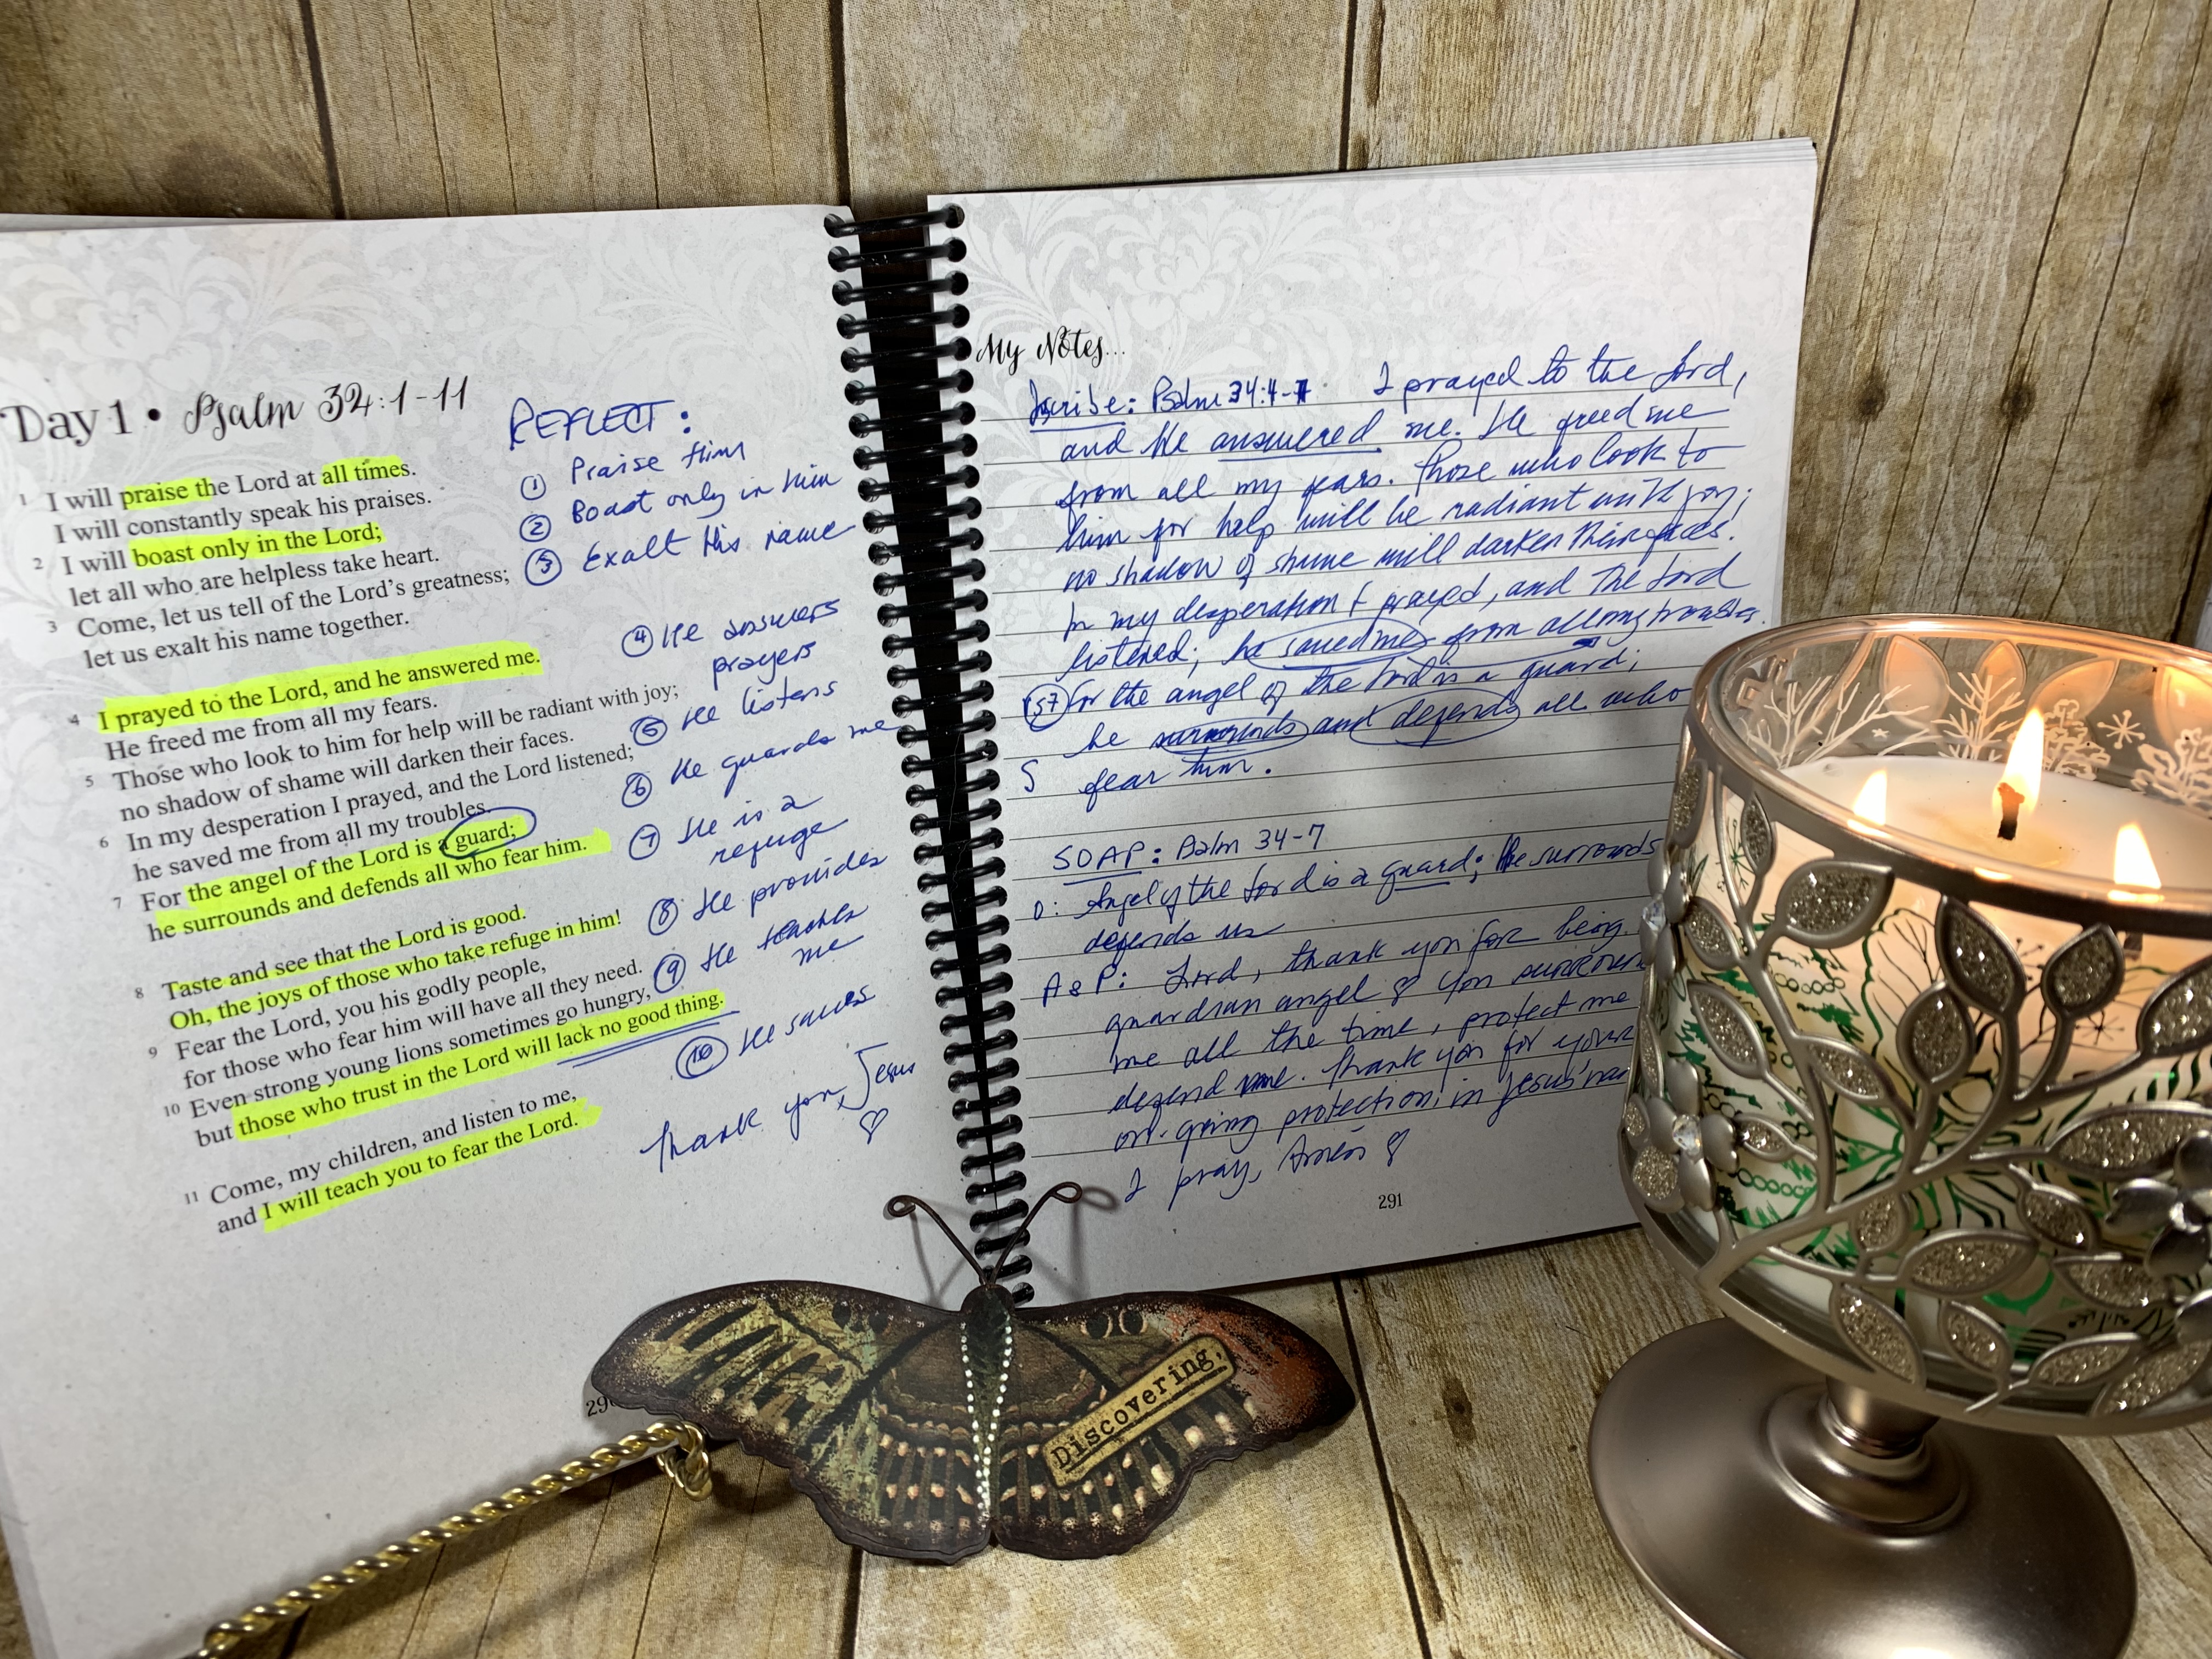 Day 1 • Psalm 34:1-11
1 I will praise the Lord at all times.
I will constantly speak his praises.
2 I will boast only in the Lord;
let all who are helpless take heart.
3 Come, let us tell of the Lord's greatness;
let us exalt his name together.
4 I prayed to the Lord, and he answered me.
He freed me from all my fears.
5 Those who look to him for help will be radiant with joy;
no shadow of shame will darken their faces.
6 In my desperation I prayed, and the Lord listened;
he saved me from all my troubles.
7 For the angel of the Lord is a guard;
he surrounds and defends all who fear him.
8 Taste and see that the Lord is good.
Oh, the joys of those who take refuge in him!
9 Fear the Lord, you his godly people,
for those who fear him will have all they need.
10 Even strong young lions sometimes go hungry,
but those who trust in the Lord will lack no good thing.
11 Come, my children, and listen to me,
and I will teach you to fear the Lord.
REFLECT:
1 Praise Him
2 Boast only in Him
3 Exalt His name
4 He answers
prayers
5 He listens
6 He guards me
7 He is a
refuge
8 He provides
9 He teaches
me
10 He saves
Thank you, Jesus
29
My Notes...
Scribe: Psalm 34:4-7 I prayed to the Lord,
and He answered me. He freed me
from all my fears. Those who look to
him for help will be radiant with joy;
no shadow of shame will darken their faces.
In my desperation I prayed, and the Lord
listened; he saved me from all my troubles.
For the angel of the Lord is a guard;
he surrounds and defends all who
S fear him.
SOAP: Psalm 34-7
O: Angel of the Lord is a guard; He surrounds
defends us
A&P: Lord, thank you for being
guardian angel You
me all the time, protect me
defend me. Thank you for your
on-going protection, in Jesus'
I pray, Amen
291
Discovering,